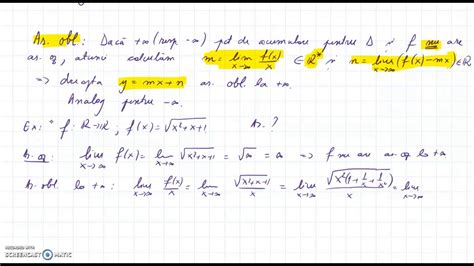 As. obl: Dacă +∞ (resp -∞) pct de acumulare pentru D și f nu are
as. oriz, atunci calculăm m = lim x→∞ f(x)/x ∈ R* și n = lim x→∞ (f(x) - mx) ∈ R
=> dreapta y = mx + n as. obl la +∞.
Analog pentru -∞.
Ex: f: R → R, f(x) = √(x²+x+1) As. ?
lim x→∞ f(x) = lim x→∞ √(x²+x+1) = √∞ = ∞ => f nu are as. la +∞
As. obl la +∞: lim x→∞ f(x)/x = lim x→∞ √(x²+x+1)/x = lim x→∞ √(x²(1+1/x+1/x²))/x = lim x→∞
RECORDED WITH
SCREENCAST MATIC